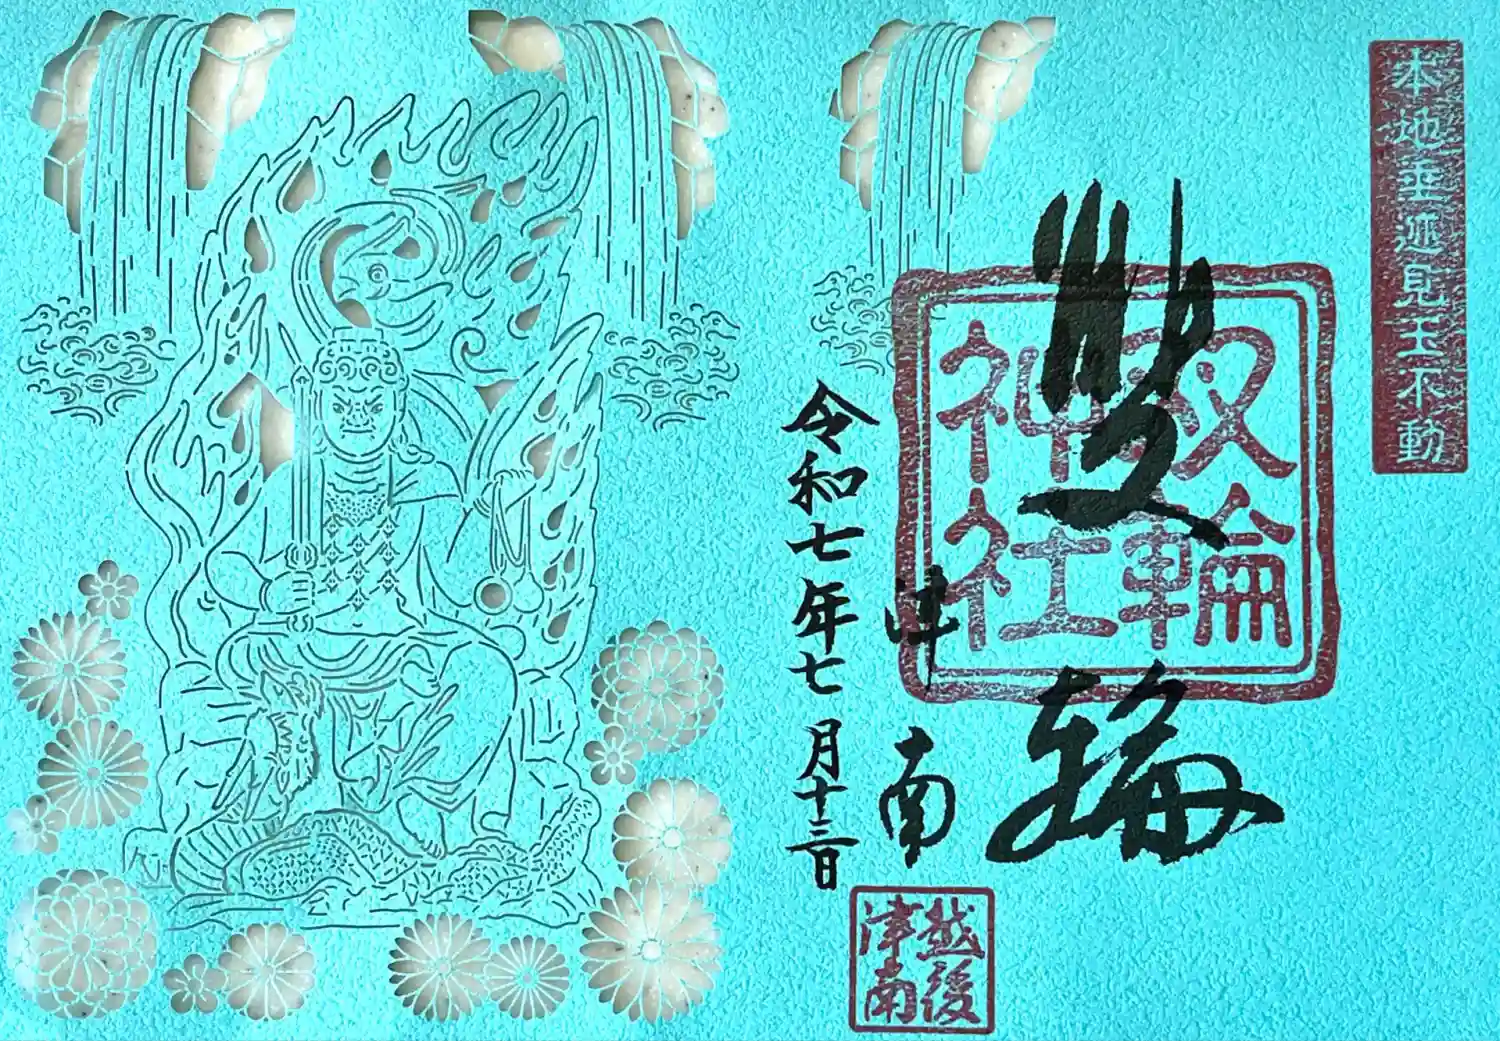 本地垂迹見玉不動
雙輪
双輪神社
津南
令和七年七月十三日
越後津南